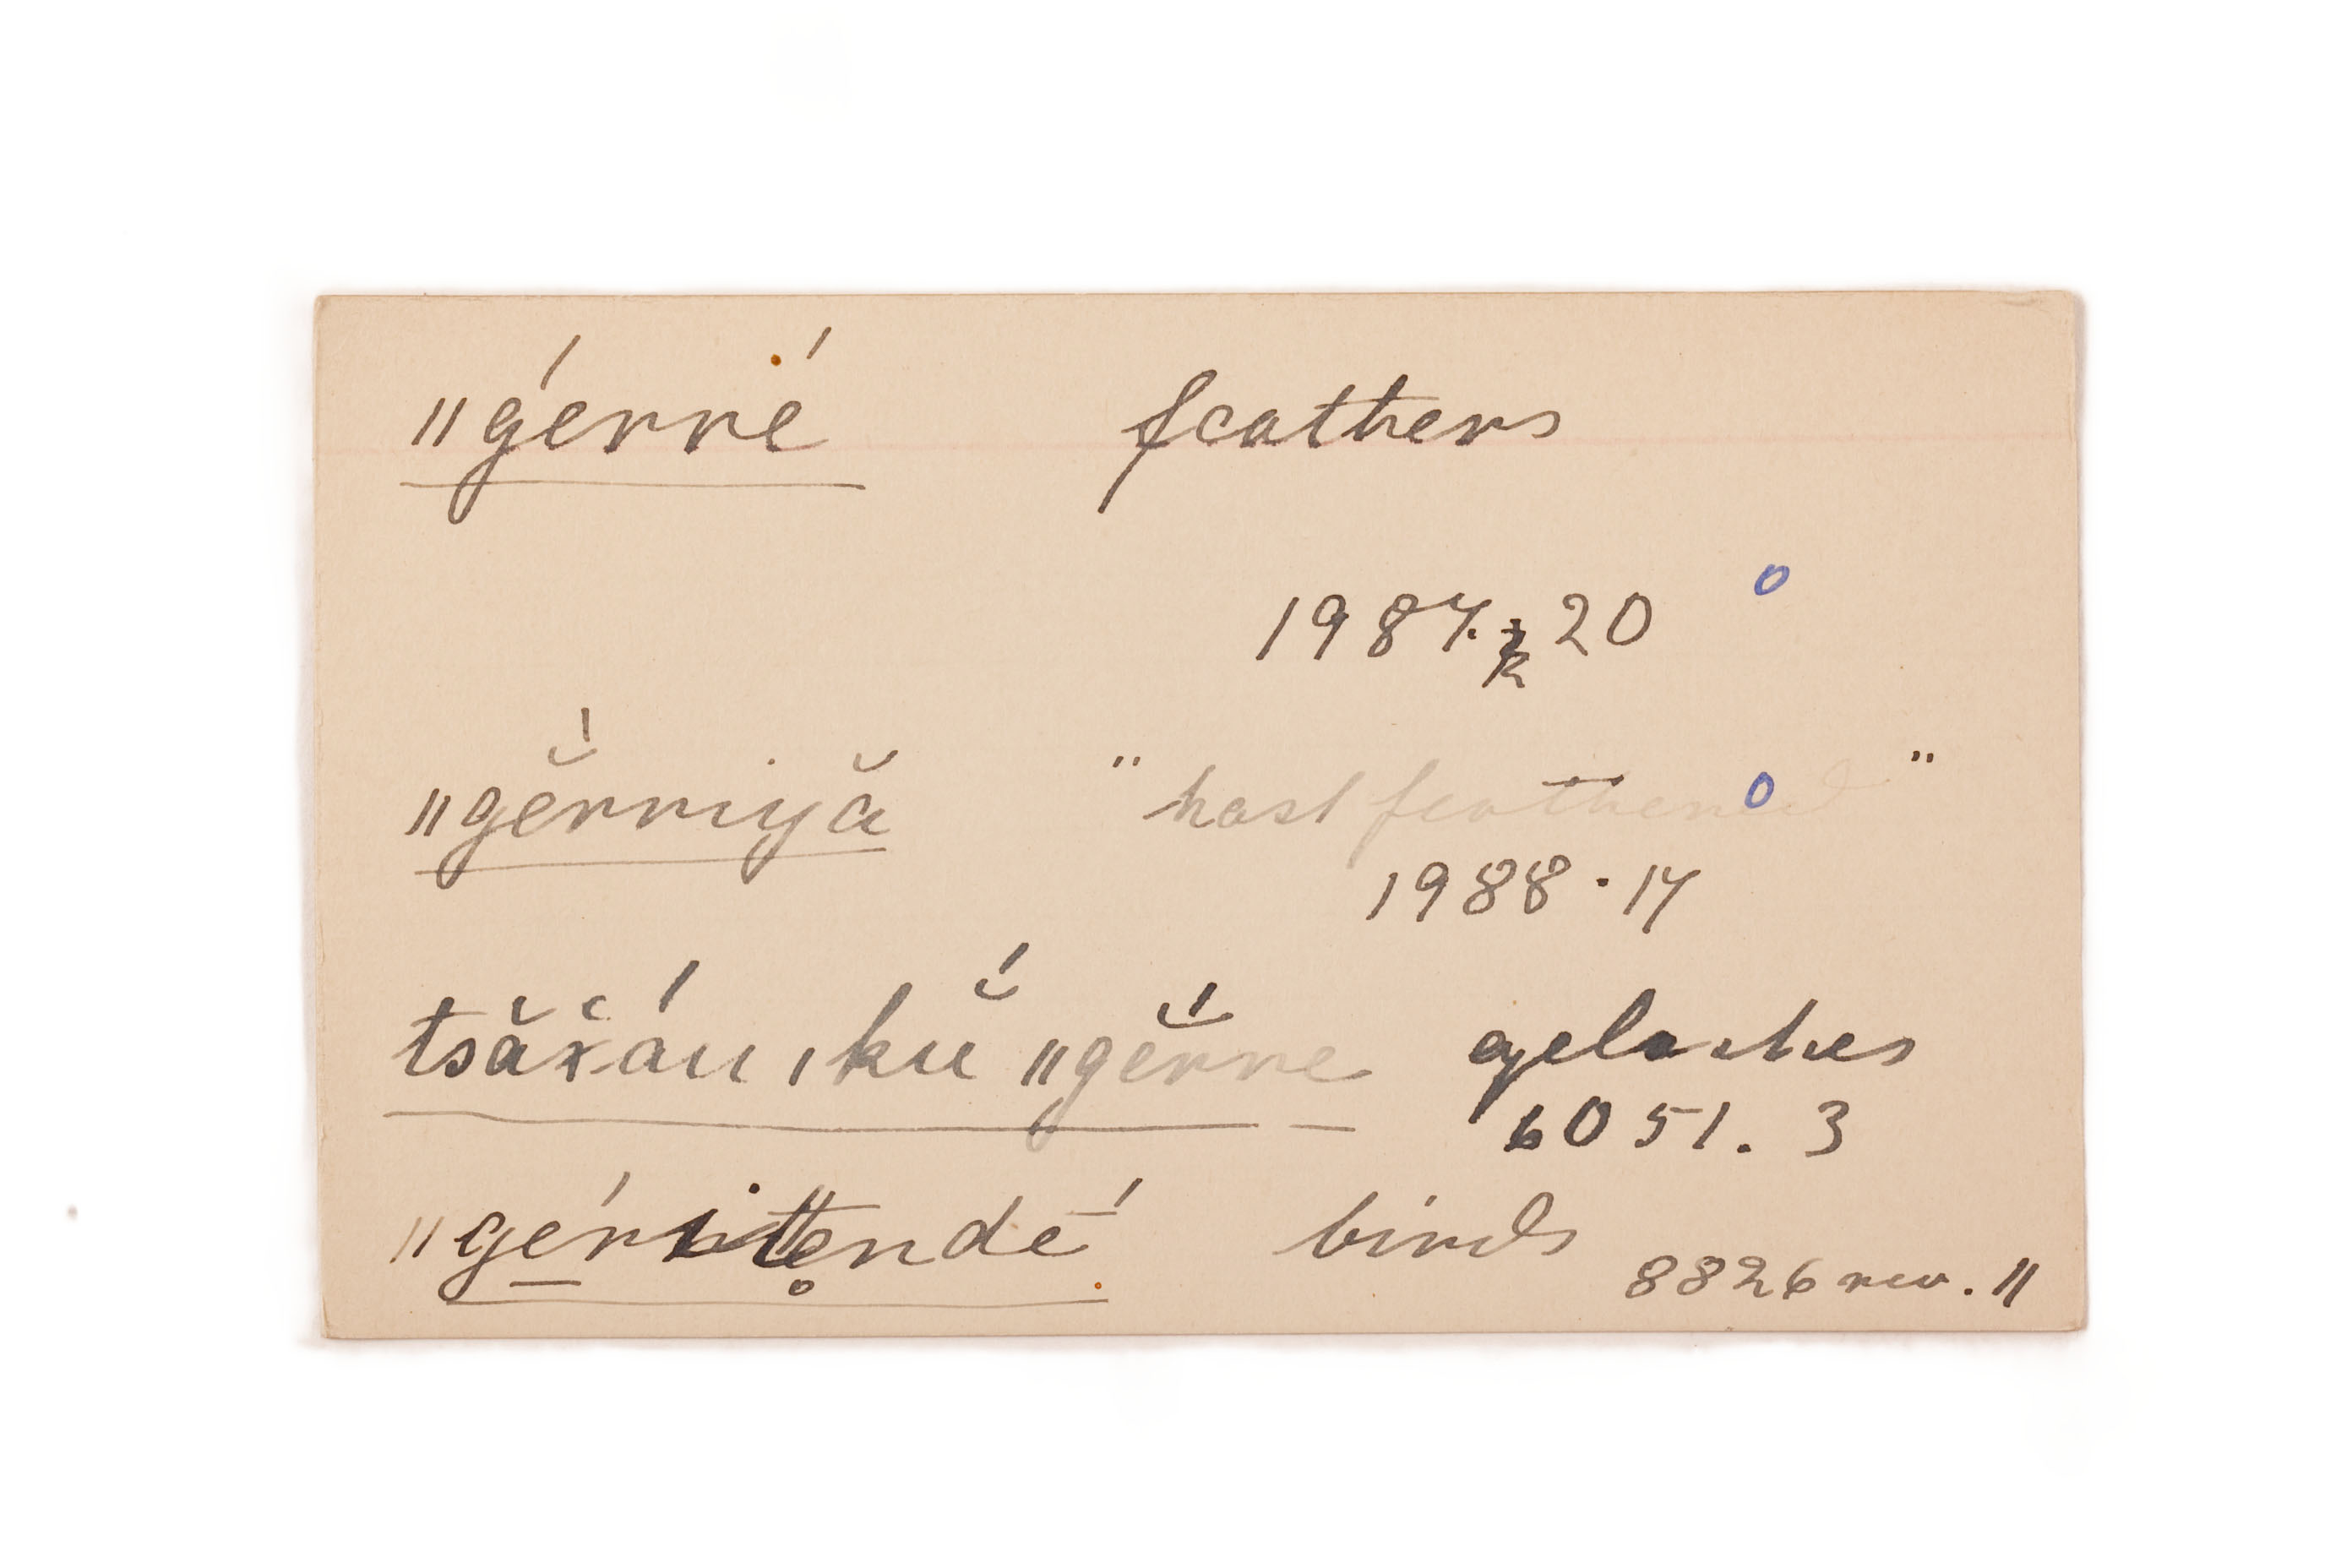 ||gérré feathers
1987. 20
||gĕ́rriyă "hast feathered"
1988.17
tsăx̆áu ı kŭ́ ||gĕ́rre eyelashes
6051. 3
||gérrittẹndé birds 8826 rev. ||